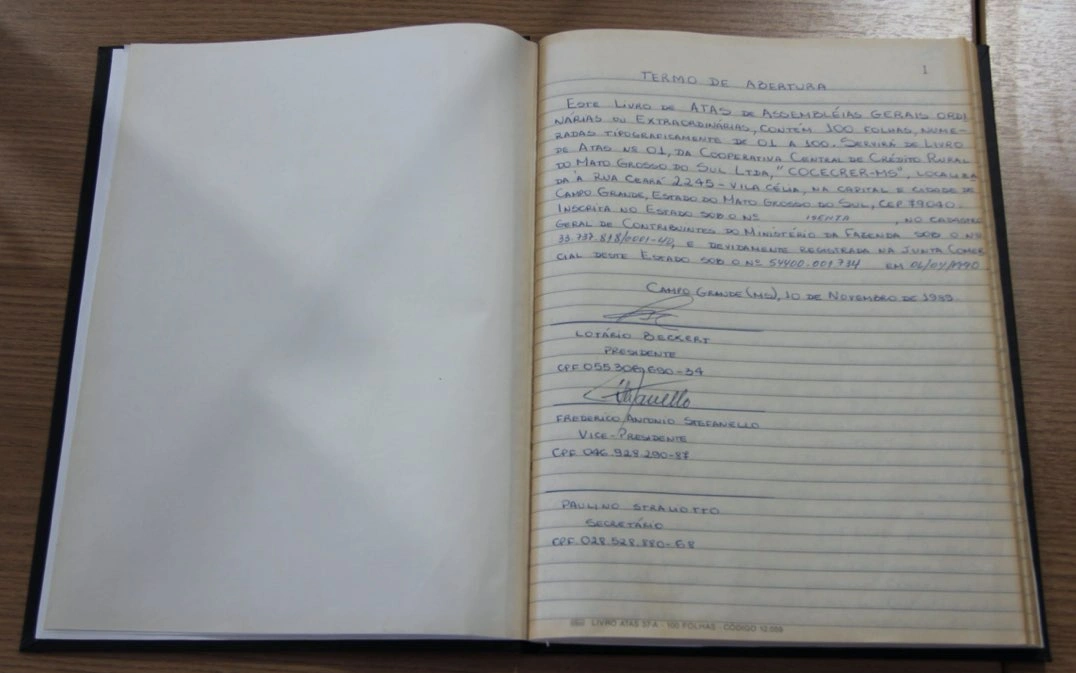 1
TERMO DE ABERTURA
ESTE LIVRO DE ATAS DE ASSEMBLÉIAS GERAIS ORDI
NÁRIAS OU EXTRAORDINÁRIAS, CONTÉM 100 FOLHAS, NUME-
RADAS TIPOGRAFICAMENTE DE 01 A 100. SERVIRÁ DE LIVRO
DE ATAS Nº 01, DA COOPERATIVA CENTRAL DE CRÉDITO RURAL
DO MATO GROSSO DO SUL LTDA, "COCECRER-MS", LOCALIZA
DA À RUA CEARÁ 2245 - VILA CÉLIA, NA CAPITAL E CIDADE DE
CAMPO GRANDE, ESTADO DO MATO GROSSO DO SUL, CEP 79040.
INSCRITA NO ESTADO SOB O Nº ISENTA, NO CADASTRO
GERAL DE CONTRIBUINTES DO MINISTÉRIO DA FAZENDA SOB O Nº
33.737.818/0001-40, E DEVIDAMENTE REGISTRADA NA JUNTA COMER
CIAL DESTE ESTADO SOB O Nº 54400.001.734 EM
CAMPO GRANDE (MS), 10 DE NOVEMBRO DE 1989
LOTÁRIO BECKERT
PRESIDENTE
CPF 055.308.690-34
FREDERICO ANTONIO STEFANELLO
VICE-PRESIDENTE
CPF 046.928.290-87
PAULINO STRALIOTTO
SECRETÁRIO
CPF. 028.528.880-68
LIVRO ATAS 37-A - 100 FOLHAS - CÓDIGO 12.009